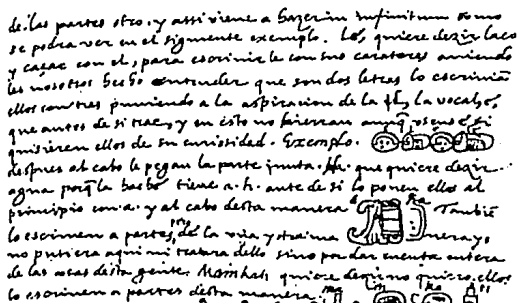 de las partes otro. y assi viene a hazer in infinitum como
se podra ver en el siguiente exemplo. Lé, quiere dezir laço
y caçar con el, para escrivirle con sus carateres aviendo
les nosotros hecho entender que son dos letras lo escrivian
ellos con tres puniendo a la aspiracion de la l, la vocal é,
que antes de si trae, y en esto no hierran aunq
quisieren ellos de su curiosidad. Exemplo.
despues al cabo le pegan la parte junta. Ha. que quiere dezir
agua porq la hache tiene a. h. ante de si lo ponen ellos al
principio con a. y al cabo desta manera ha Tambie
lo escriven a partes de la una y otra manera yo
no pusiera aqui ni tratara dello sino por dar cuenta entera
de las cosas desta gente. Mainkati quiere dezir no quiero. ellos
lo escriven a partes desta manera. ma i n ka ti